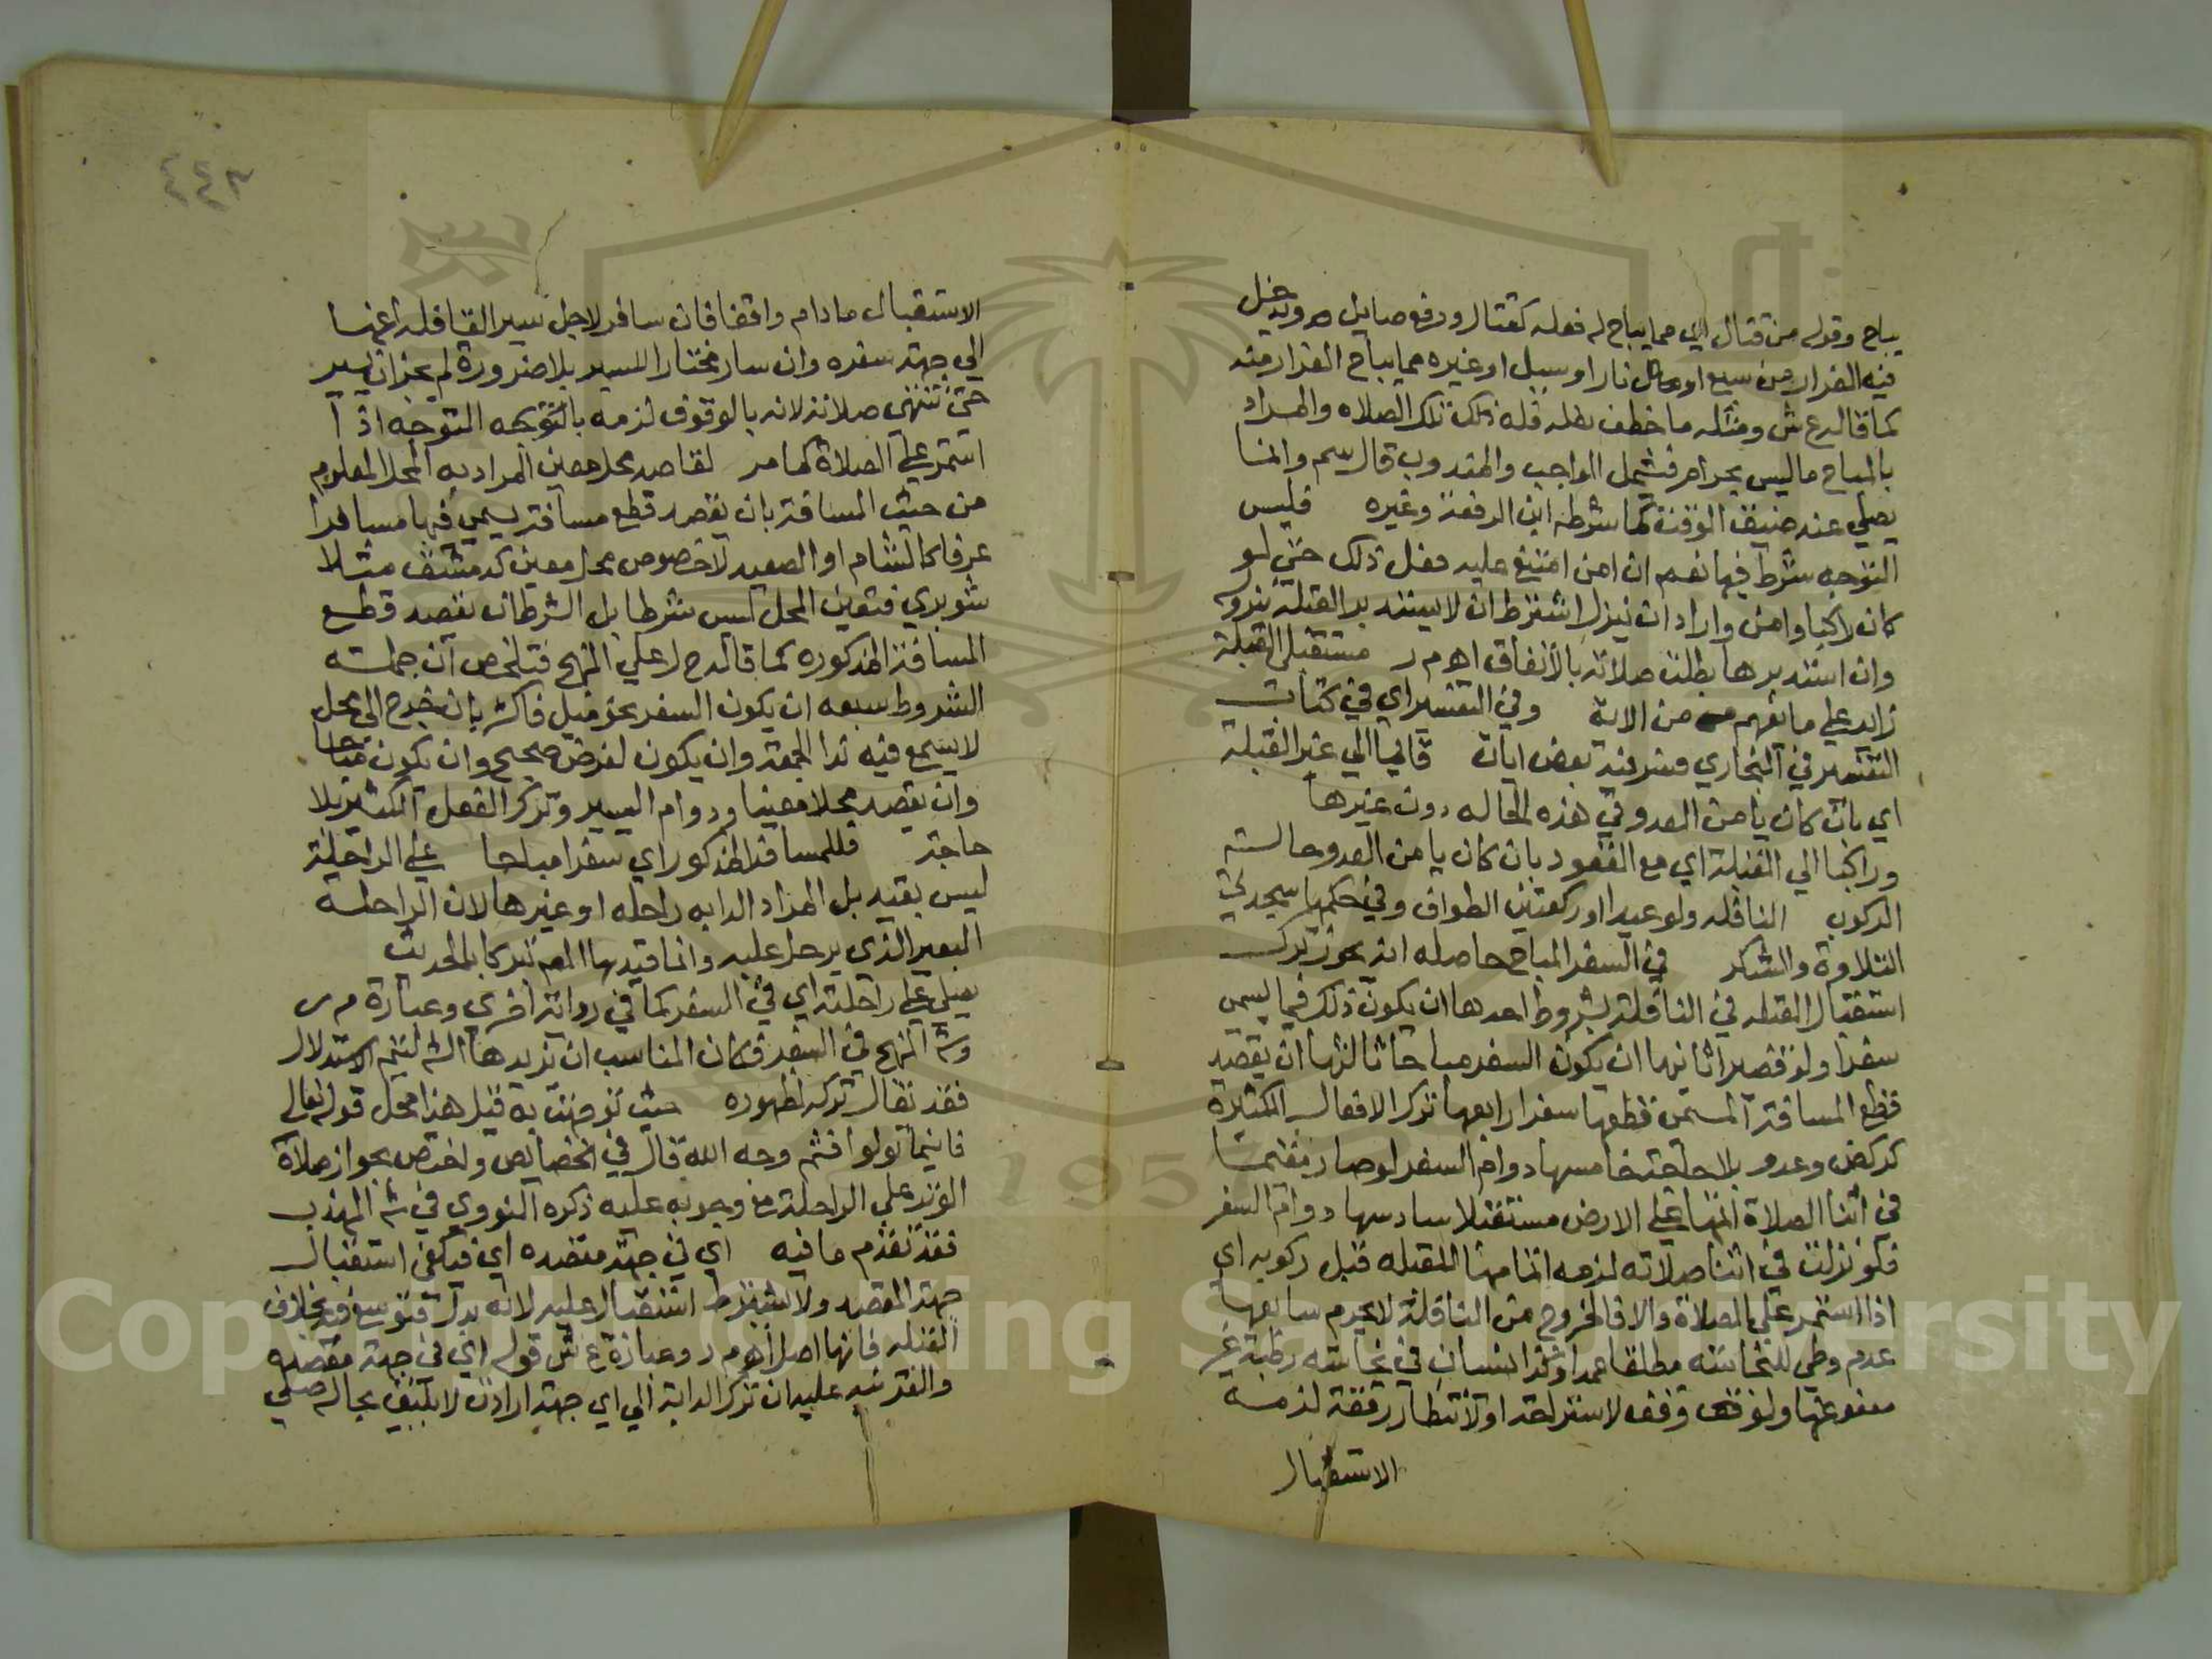 يباح وقوله من قتال اي مما يباح له فعله كقتال ودفع صايل م ر ودخل
فيه الفرار من سبع او نار او سيل او غيره مما يباح الفرار منه
كما قاله ع ش ومثله ما خطف نعله فله ذلك تلك الصلاه والمراد
بالمباح ما ليس بحرام فيشمل الواجب والمندوب قال سم وانما
يصلي عند ضيق الوقت كما شرطه ابن الرفعة وغيره فليس
التوجه شرط فيها نعم ان امن امتنع عليه فعل ذلك حتى لو
كان راكبا وامن واراد ان ينزل اشترط ان لا يستدبر القبلة بنزوله
وان استدبرها بطلت صلاته بالاتفاق اه م ر مستقبل القبلة
زايد علي ما يفهم من الاية وفي التفسير اي في كتاب
التفسير في البخاري بعض ايات قانيا الي غير القبلة
اي بان كان يامن العدو في هذه الحاله دون غيرها
وراكبا الي القبلة اي مع القعود بان كان يامن العدو حالة
الركوب النافله ولو عيدا او ركعتين الطواف وفي حكمها سجدتي
التلاوة والشكر في السفر المباح حاصله انه يجوز ترك
استقبال القبله في النافلة بشروط احدها ان يكون ذلك فيما يسمى
سفرا ولو قصيرا ثانيها ان يكون السفر مباحا ثالثها ان يقصد
قطع المسافة المسمى قطعها سفرا رابعها ترك الافعال الكثيرة
كركض وعدو بلا حاجة خامسها دوام السفر لو صار مقيما
في اثنا الصلاة اتمها علي الارض مستقبلا سادسها دوام السير
فلو نزل في اثنا صلاته لزمه اتمامها للقبله قبل ركوبه اي
اذا استمر علي الصلاة والا فالخروج من النافلة لا يحرم سابعها
عدم وطي النجاسة مطلقا عمدا وكذا نسيان في نجاسه رطبة غير
معفو عنها ولو وقف لاستراحة او لانتظار رفقة لزمه
الاستقبال
٤٤٣
الاستقبال ما دام واقفا فان سافر لاجل سير القافله اتمها
الي جهة سفره وان سار مختارا للسير بلا ضرورة لم يجز ان يسير
حتى تنتهى صلاته لانه بالوقوف لزمه التوجه اذا
استمر علي الصلاة كما مر لقاصد محل معين المراد به المحل المعلوم
من حيث المسافة بان يقصد قطع مسافة يسمى فيها مسافرا
عرفا كالشام او الصعيد لا خصوص محل معين كدمشق مثلا
شوبري فتعين المحل ليس شرطا بل الشرط ان يقصد قطع
المسافة المذكوره كما قاله ح ل علي المنهج فتلخص ان جملة
الشروط سبعه ان يكون السفر نحو ميل فاكثر بان خرج الى محل
لا يسمع فيه ندا الجمعة وان يكون لغرض صحيح وان يكون مباحا
وان يقصد محلا معينا ودوام السير وترك الفعل الكثير بلا
حاجة فللمسافر المذكور اي سفرا مباحا علي الراحلة
ليس بقيد بل المراد الدابه راحله او غيرها لان الراحله
البعير الذى يرحل عليه وانما قيد بها المص تبركا بالحديث
يصلي علي راحلته اي في السفر كما في رواية اخرى وعبارة م ر
وش المنهج في السفر فكان المناسب ان يزيدها الش ليتم الاستدلال
فقد يقال تركه لظهوره حيث توجهت به قيل هذا محل قوله تعالي
فاينما تولوا فثم وجه الله قال في الخصايص واختص بجواز صلاة
الوتر علي الراحلة مع وجوبه عليه ذكره النووي في ش المهذب
فقد تقدم ما فيه اي في جهة مقصده اي فيكفي استقبال
جهة المقصد ولا يشترط استقبال عليه لانه بدل فتوسع فيه بخلاف
القبله فانها اصل اه م ر وعبارة ع ش قوله اي في جهة مقصده
والفرق عليه ان ترك الدابة الي اي جهة ارادت لا يليق بحال مصلي